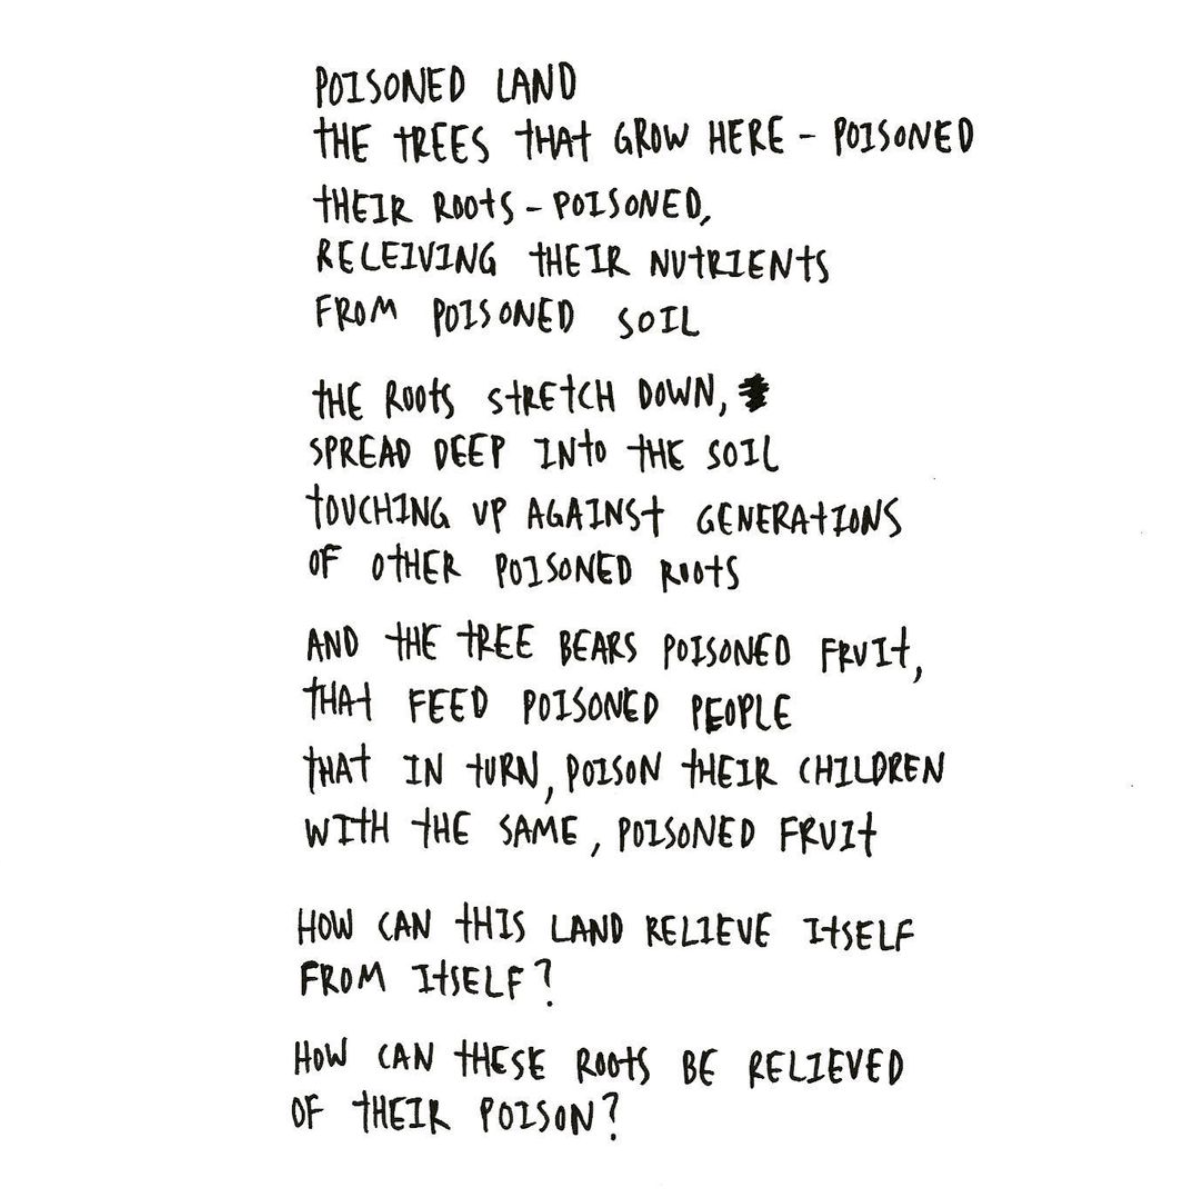 POISONED LAND
THE TREES THAT GROW HERE - POISONED
THEIR ROOTS - POISONED,
RECEIVING THEIR NUTRIENTS
FROM POISONED SOIL
THE ROOTS STRETCH DOWN,
SPREAD DEEP INTO THE SOIL
TOUCHING UP AGAINST GENERATIONS
OF OTHER POISONED ROOTS
AND THE TREE BEARS POISONED FRUIT,
THAT FEED POISONED PEOPLE
THAT IN TURN, POISON THEIR CHILDREN
WITH THE SAME, POISONED FRUIT
HOW CAN THIS LAND RELIEVE ITSELF
FROM ITSELF?
HOW CAN THESE ROOTS BE RELIEVED
OF THEIR POISON?